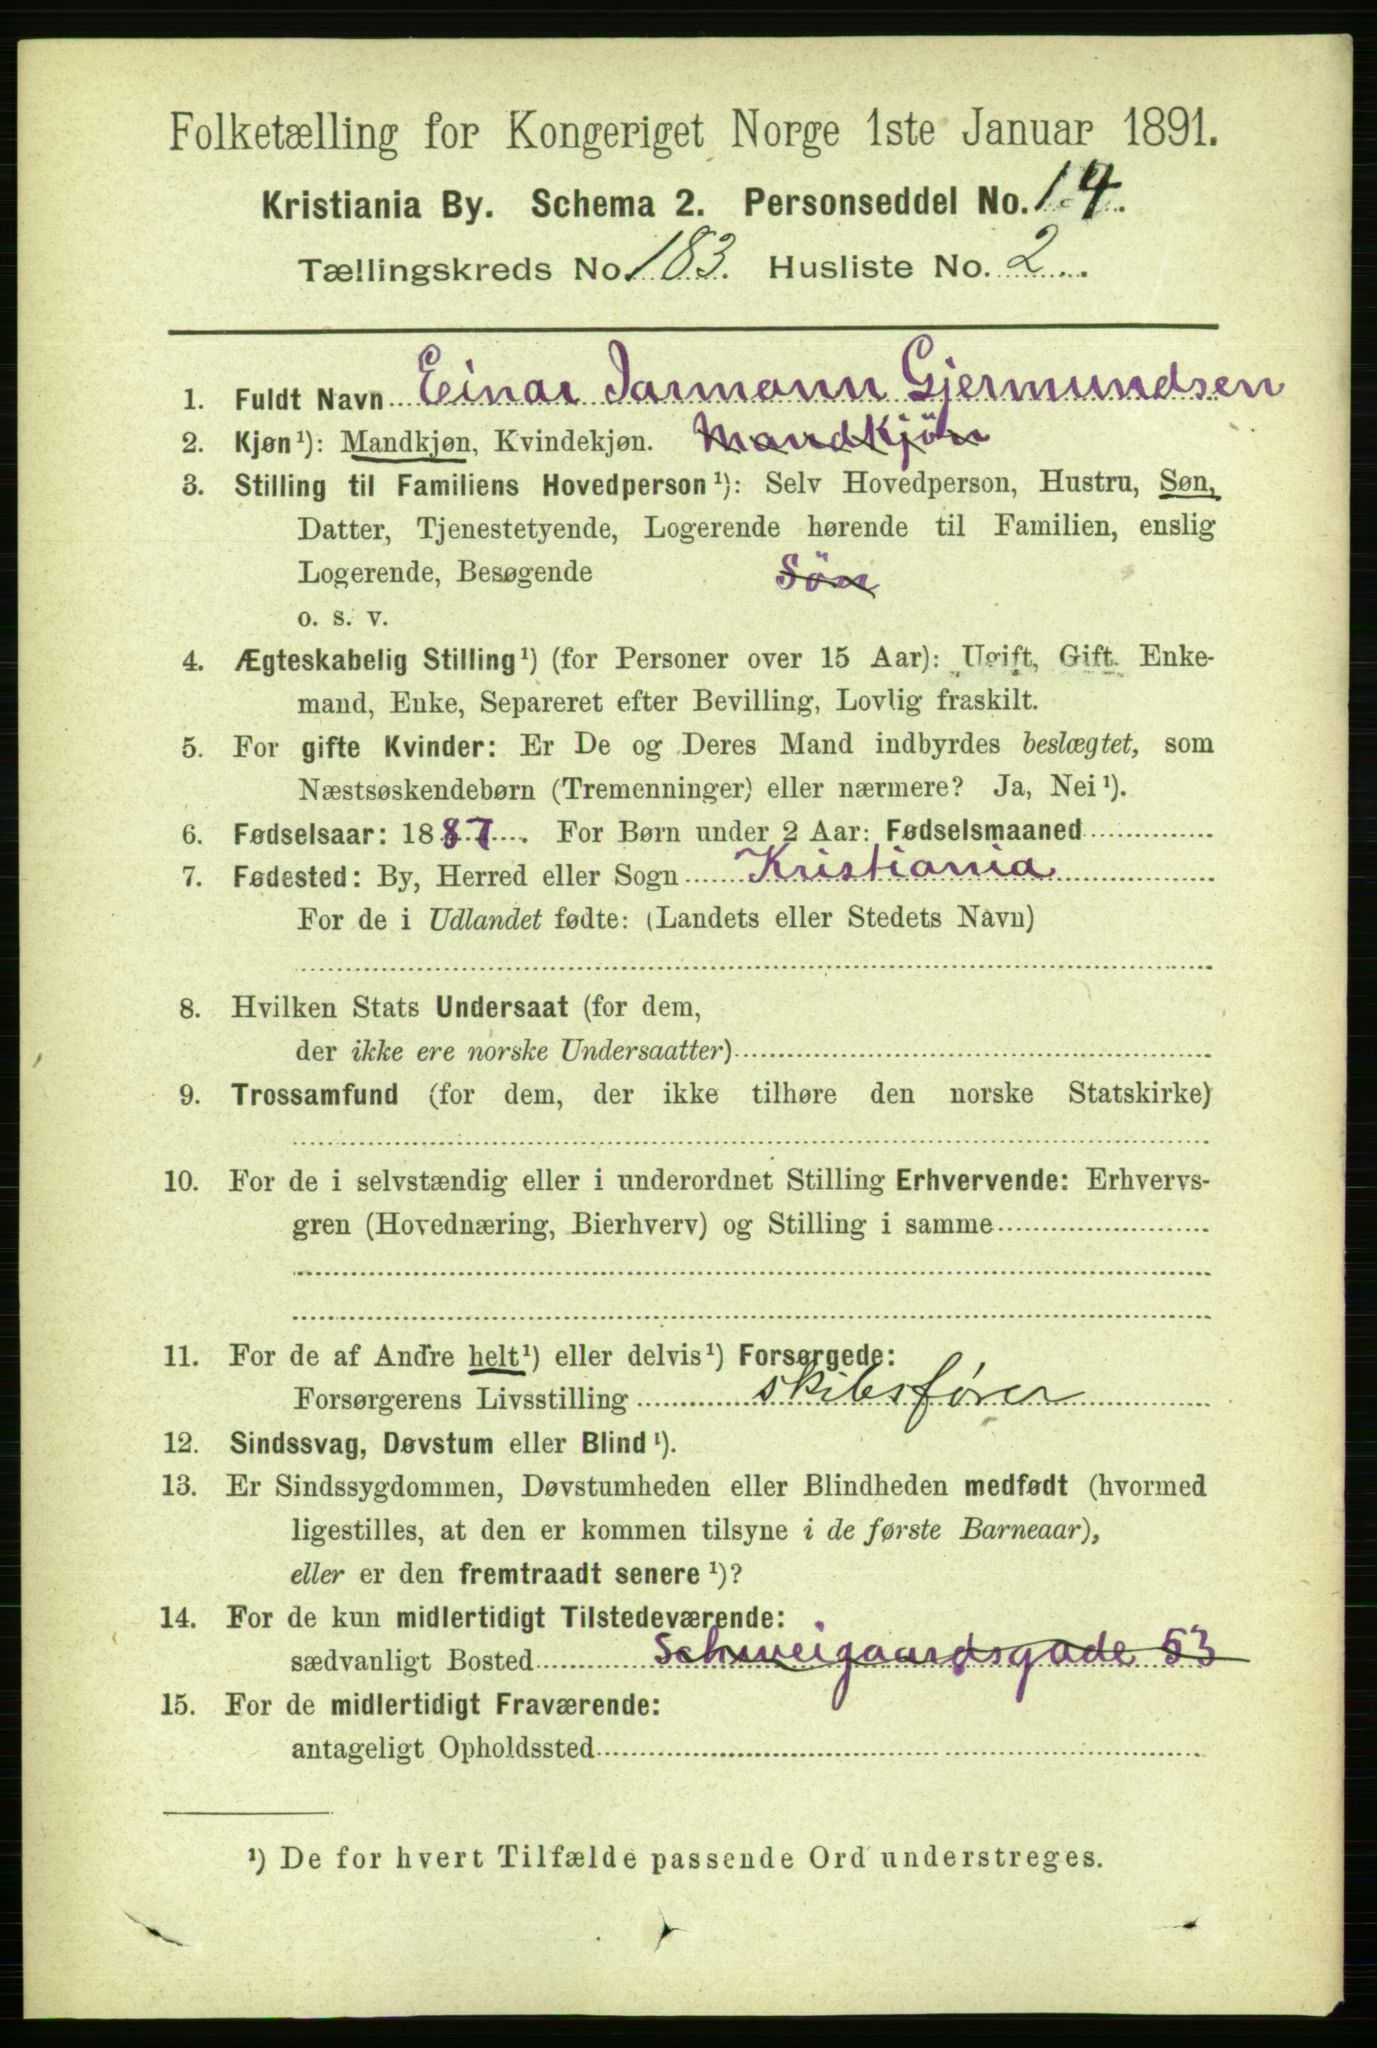 Folketælling for Kongeriget Norge 1ste Januar 1891.
Kristiania By. Schema 2. Personseddel No. 14.
Tællingskreds No. 183. Husliste No. 2
1. Fuldt Navn Einar Jarmann Gjermundsen
2. Kjøn¹): Mandkjøn, Kvindekjøn. Mandkjön
3. Stilling til Familiens Hovedperson¹): Selv Hovedperson, Hustru, Søn,
Datter, Tjenestetyende, Logerende hørende til Familien, enslig
Logerende, Besøgende Sön
o. s. v.
4. Ægteskabelig Stilling¹) (for Personer over 15 Aar): Ugift, Gift, Enke-
mand, Enke, Separeret efter Bevilling, Lovlig fraskilt.
5. For gifte Kvinder: Er De og Deres Mand indbyrdes beslægtet, som
Næstsøskendebørn (Tremenninger) eller nærmere? Ja, Nei¹).
6. Fødselsaar: 1887. For Børn under 2 Aar: Fødselsmaaned
7. Fødested: By, Herred eller Sogn Kristiania
For de i Udlandet fødte: (Landets eller Stedets Navn)
8. Hvilken Stats Undersaat (for dem,
der ikke ere norske Undersaatter)
9. Trossamfund (for dem, der ikke tilhøre den norske Statskirke)
10. For de i selvstændig eller i underordnet Stilling Erhvervende: Erhvervs-
gren (Hovednæring, Bierhverv) og Stilling i samme
11. For de af Andre helt¹) eller delvis¹) Forsørgede:
Forsørgerens Livsstilling skibsfører
12. Sindssvag, Døvstum eller Blind¹).
13. Er Sindssygdommen, Døvstumheden eller Blindheden medfødt (hvormed
ligestilles, at den er kommen tilsyne i de første Barneaar),
eller er den fremtraadt senere¹)?
14. For de kun midlertidigt Tilstedeværende:
sædvanligt Bosted Schweigaardsgade 53
15. For de midlertidigt Fraværende:
antageligt Opholdssted
¹) De for hvert Tilfælde passende Ord understreges.